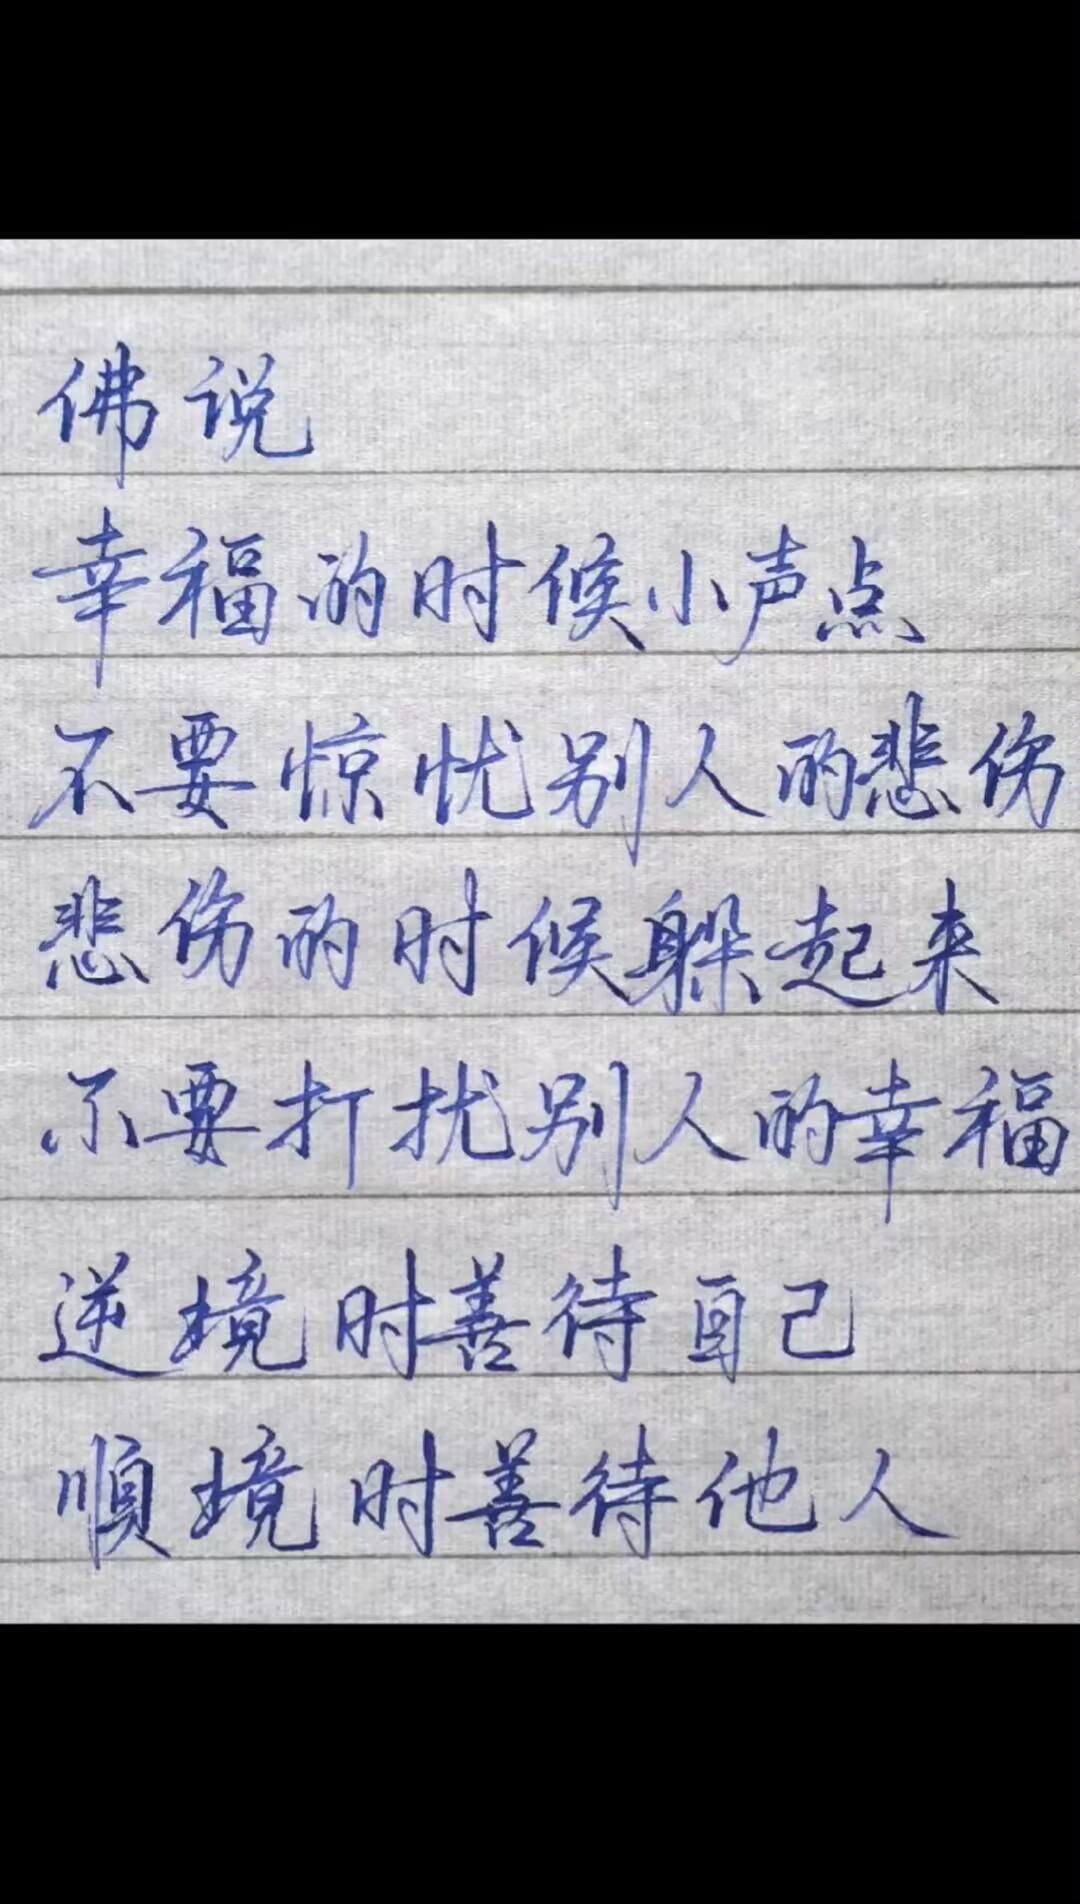 佛说
幸福的时候小声点
不要惊忧别人的悲伤
悲伤的时候躲起来
不要打扰别人的幸福
逆境时善待自己
顺境时善待他人